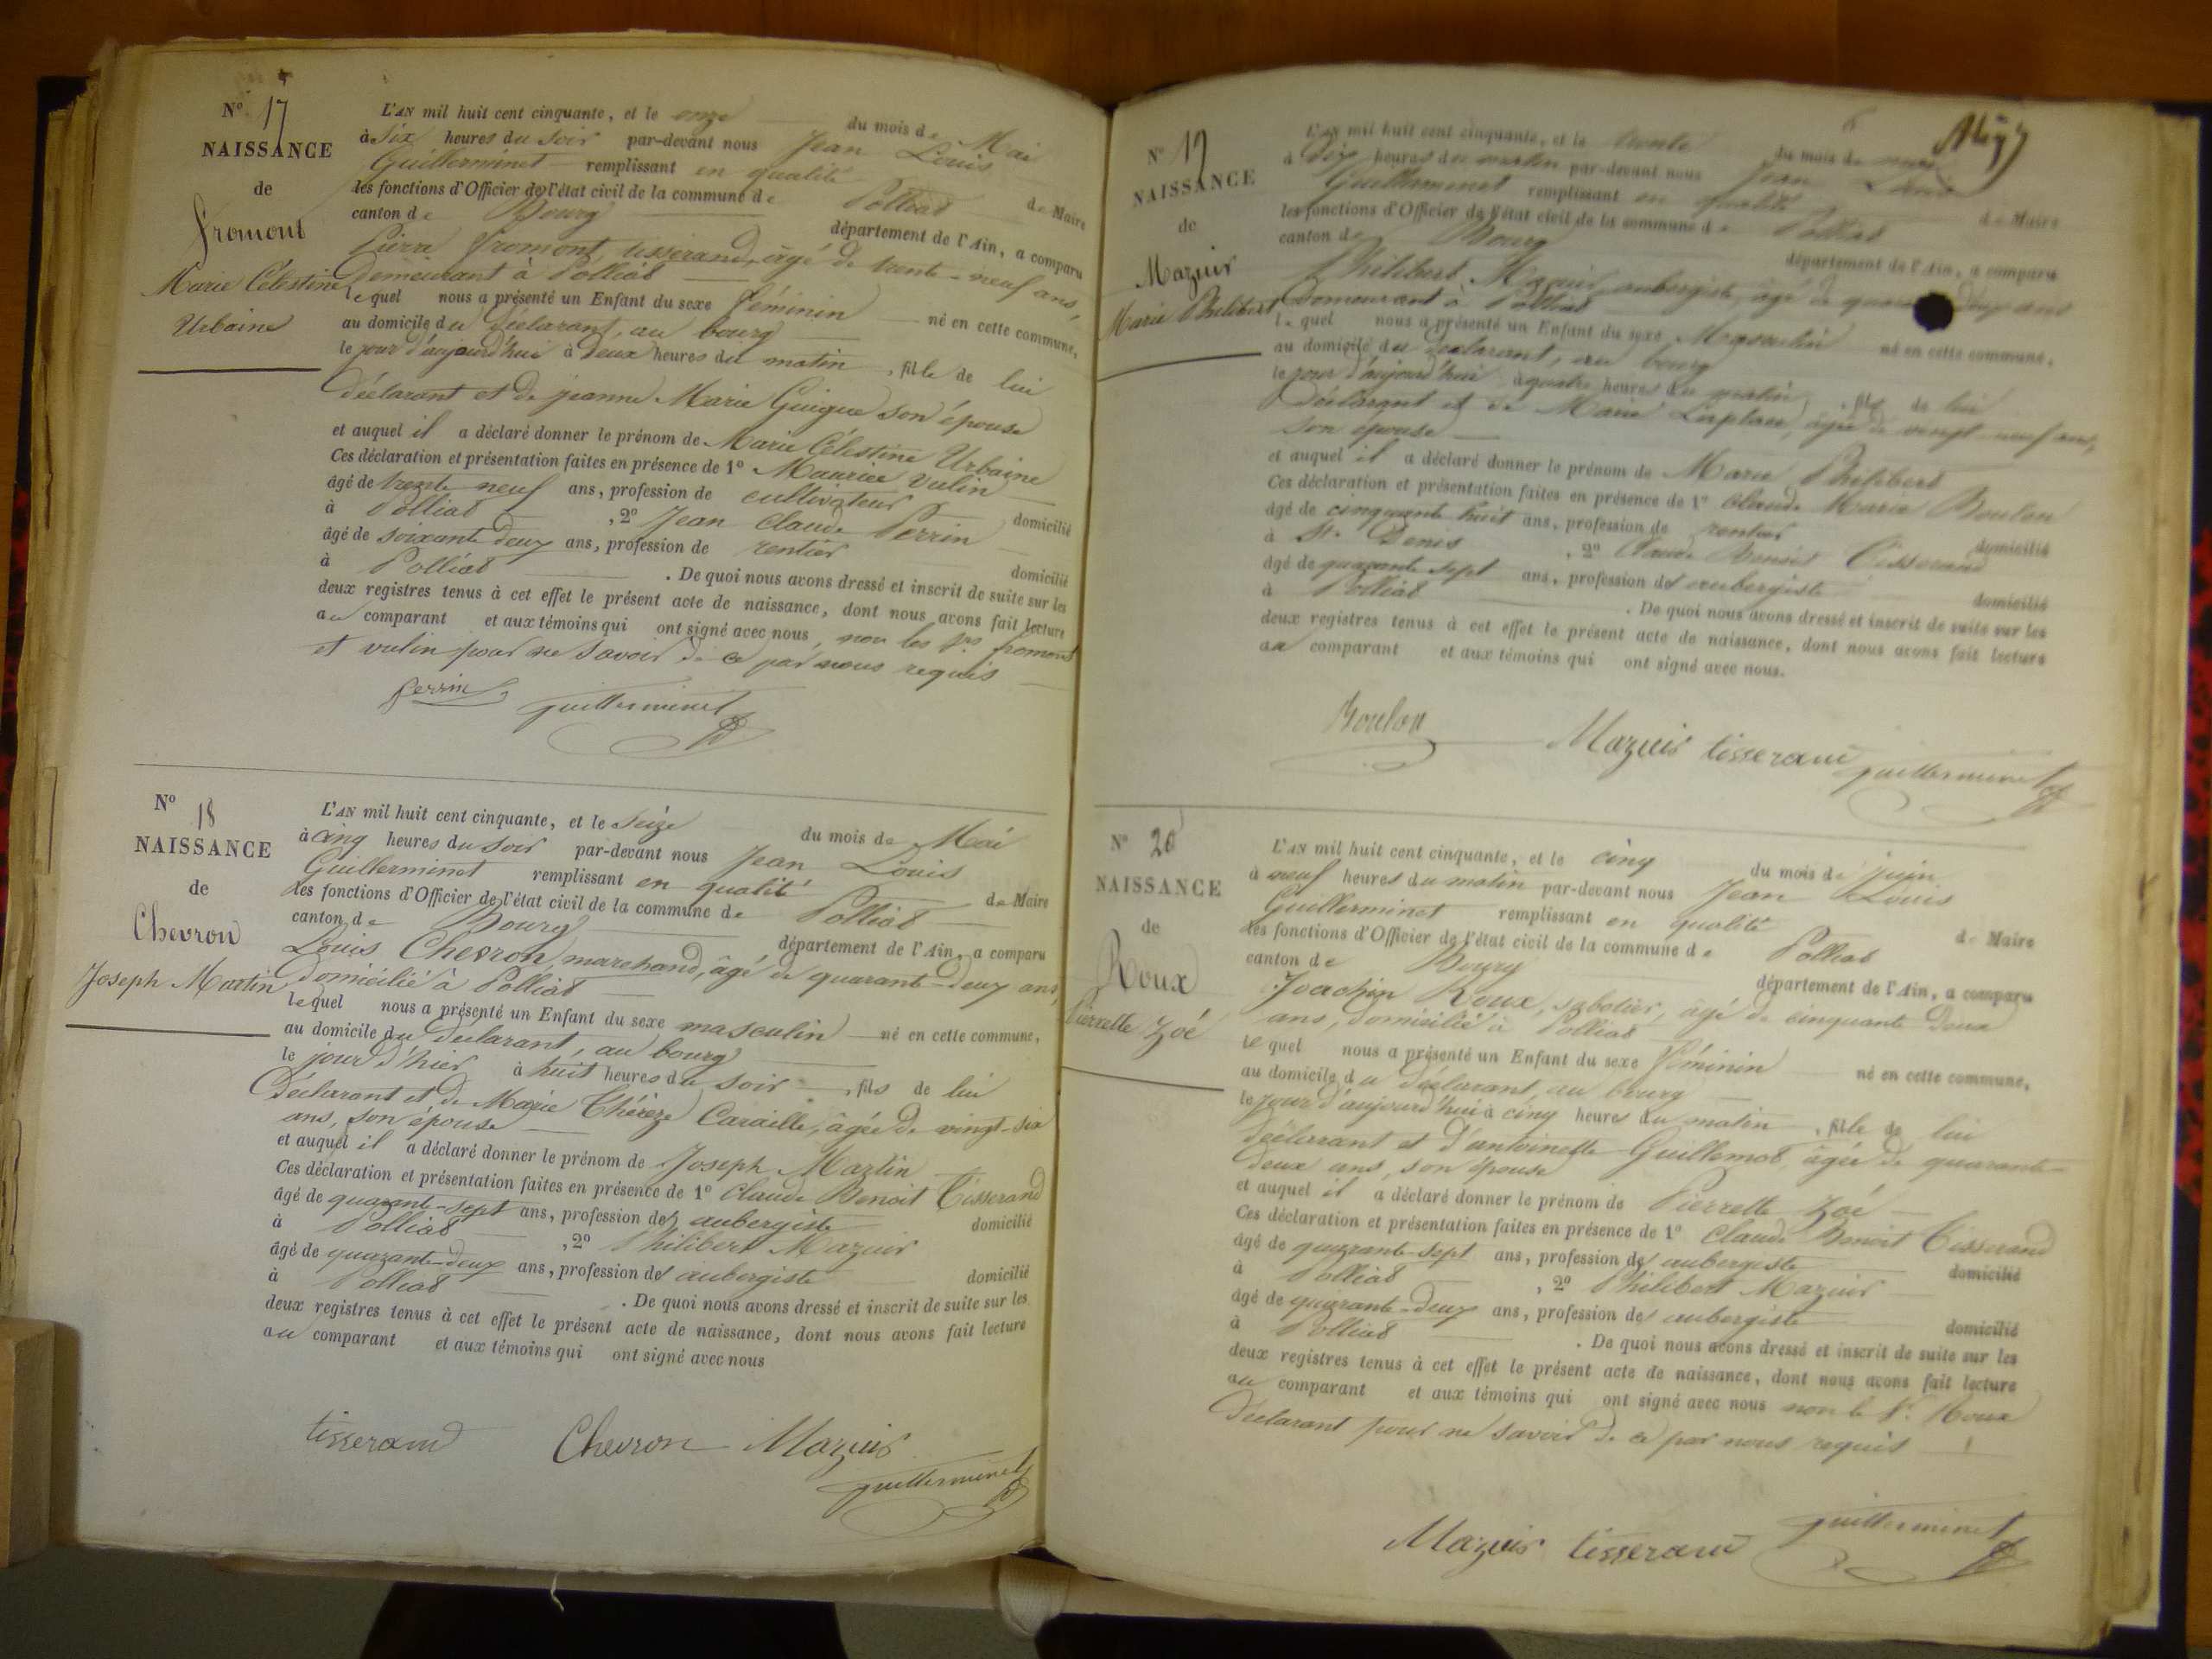 Nº 17
NAISSANCE
de
Fromont
Marie Célestine
Urbaine
L'AN mil huit cent cinquante, et le onze du mois de Mai
à six heures du soir par-devant nous Jean Louis
Guillerminet remplissant en qualité de Maire
les fonctions d'Officier de l'état civil de la commune de Polliat
canton de Bourg département de l'Ain, a comparu
Pierre Fromont, tisserand, âgé de trente-neuf ans,
Demeurant à Polliat
lequel nous a présenté un Enfant du sexe féminin né en cette commune,
au domicile du déclarant, au bourg
le jour d'aujourd'hui à deux heures du matin, fille de lui
déclarant et de jeanne Marie Guigue son épouse
et auquel il a déclaré donner le prénom de Marie Célestine Urbaine
Ces déclaration et présentation faites en présence de 1º Maurice Vulin
âgé de trente neuf ans, profession de cultivateur domicilié
à Polliat, 2º Jean Claude Perrin
âgé de soixante deux ans, profession de rentier domicilié
à Polliat. De quoi nous avons dressé et inscrit de suite sur les
deux registres tenus à cet effet le présent acte de naissance, dont nous avons fait lecture
au comparant et aux témoins qui ont signé avec nous, non les srs fromont
et vulin pour ne savoir de ce par nous requis
Perrin guillerminet
Nº 18
NAISSANCE
de
Chevron
Joseph Martin
L'AN mil huit cent cinquante, et le seize du mois de Mai
à cinq heures du soir par-devant nous Jean Louis
Guillerminet remplissant en qualité de Maire
les fonctions d'Officier de l'état civil de la commune de Polliat
canton de Bourg département de l'Ain, a comparu
Louis Chevron, marchand, âgé de quarante-deux ans,
domicilié à Polliat
lequel nous a présenté un Enfant du sexe masculin né en cette commune,
au domicile du déclarant, au bourg
le jour d'hier à huit heures du soir, fils de lui
Déclarant et de Marie Thérèze Caraille, âgée de vingt-six
ans, son épouse
et auquel il a déclaré donner le prénom de Joseph Martin
Ces déclaration et présentation faites en présence de 1º Claude Benoit Tisserand
âgé de quarante-sept ans, profession de aubergiste domicilié
à Polliat, 2º Philibert Mazuir
âgé de quarante-deux ans, profession de aubergiste domicilié
à Polliat. De quoi nous avons dressé et inscrit de suite sur les
deux registres tenus à cet effet le présent acte de naissance, dont nous avons fait lecture
au comparant et aux témoins qui ont signé avec nous
tisserand Chevron Mazuir
guillerminet
Nº 19
NAISSANCE
de
Mazuir
Marie Philibert
L'AN mil huit cent cinquante, et le trente du mois de mai
à dix heures du matin par-devant nous Jean Louis
Guillerminet remplissant en qualité de Maire
les fonctions d'Officier de l'état civil de la commune de Polliat
canton de Bourg département de l'Ain, a comparu
Philibert Mazuir, aubergiste, âgé de deux ans
Demeurant à Polliat
lequel nous a présenté un Enfant du sexe Masculin né en cette commune,
au domicile du déclarant, au bourg
le jour d'aujourd'hui à quatre heures du matin, fils de lui
Déclarant et de Marie Laplace, âgée de vingt neuf ans,
son épouse
et auquel il a déclaré donner le prénom de Marie Philibert
Ces déclaration et présentation faites en présence de 1º Claude Marie Boulon
âgé de cinquante huit ans, profession de rentier domicilié
à St. Denis, 2º Claude Benoit Tisserand
âgé de quarante sept ans, profession de aubergiste domicilié
à Polliat. De quoi nous avons dressé et inscrit de suite sur les
deux registres tenus à cet effet le présent acte de naissance, dont nous avons fait lecture
au comparant et aux témoins qui ont signé avec nous.
Boulon Mazuir tisserand guillerminet
Nº 20
NAISSANCE
de
Roux
Pierrette Zoé
L'AN mil huit cent cinquante, et le cinq du mois de juin
à neuf heures du matin par-devant nous Jean Louis
Guillerminet remplissant en qualité de Maire
les fonctions d'Officier de l'état civil de la commune de Polliat
canton de Bourg département de l'Ain, a comparu
Joachin Roux, sabotier, âgé de cinquante deux
ans, domicilié à Polliat
lequel nous a présenté un Enfant du sexe féminin né en cette commune,
au domicile du déclarant, au bourg
le jour d'aujourd'hui à cinq heures du matin, fille de lui
déclarant et d'antoinette Guillemot âgée de quarante-
deux ans, son épouse
et auquel il a déclaré donner le prénom de Pierrette Zoé
Ces déclaration et présentation faites en présence de 1º Claude Benoit Tisserand
âgé de quarante-sept ans, profession de aubergiste domicilié
à Polliat, 2º Philibert Mazuir
âgé de quarante-deux ans, profession de aubergiste domicilié
à Polliat. De quoi nous avons dressé et inscrit de suite sur les
deux registres tenus à cet effet le présent acte de naissance, dont nous avons fait lecture
au comparant et aux témoins qui ont signé avec nous non le sr. Roux
Déclarant pour ne savoir de ce par nous requis
Mazuir tisserand guillerminet